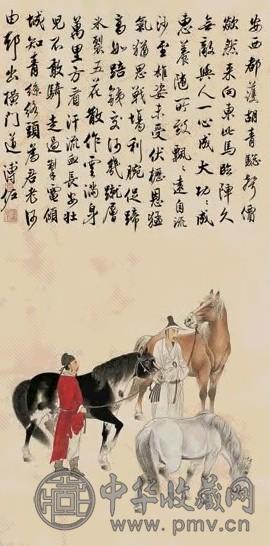 安西都護胡青驄聲價
歘然來向東此馬臨陣久
無敵與人一心成大功〻成
惠養隨所致飄〻遠自流
沙至雄姿未受伏櫪恩猛
氣猶思戰場利腕促蹄
高如踣鐵交河幾蹴層
冰裂五花散作雲滿身
萬里方看汗流血長安壯
兒不敢騎走過掣電傾
城知青絲絡頭為君老何
由却出橫門道 溥佐
中华收藏网
www.pmv.cn